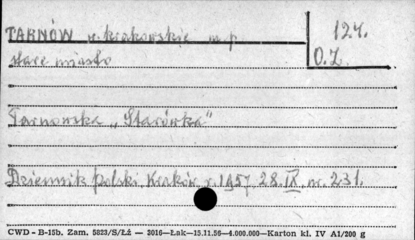 TARNÓW w. krakowskie m. p. 124.
stare miasto O.Z.
Tarnowska „Starówka"
Dziennik Polski, Kraków, r. 1957, 28. IX, nr. 231.
CWD - B-15b. Zam. 5823/S/Łż — 3016—Łak—15.11.56—4.000.000—Karton kl. IV A1/200 g